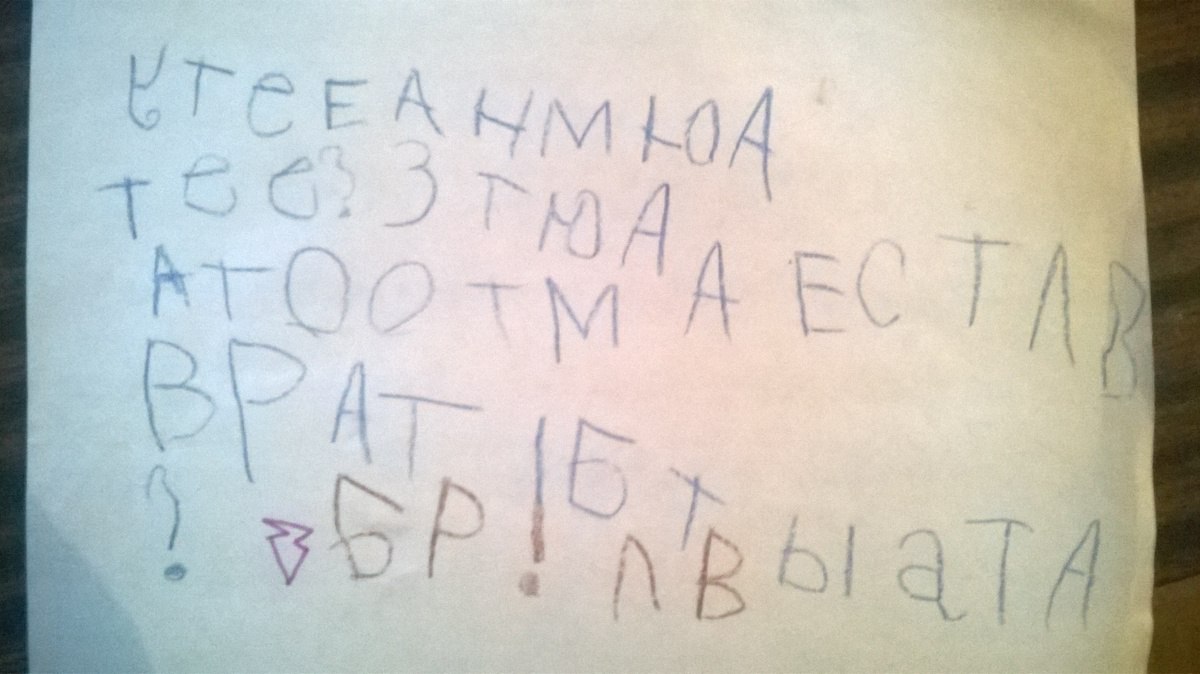 УТеЕАНМЮА
Тее?ЗТЮА
АТООТМАЕСТЛВ
ВРАТ!БТ
?БР!ЛВЫаТА